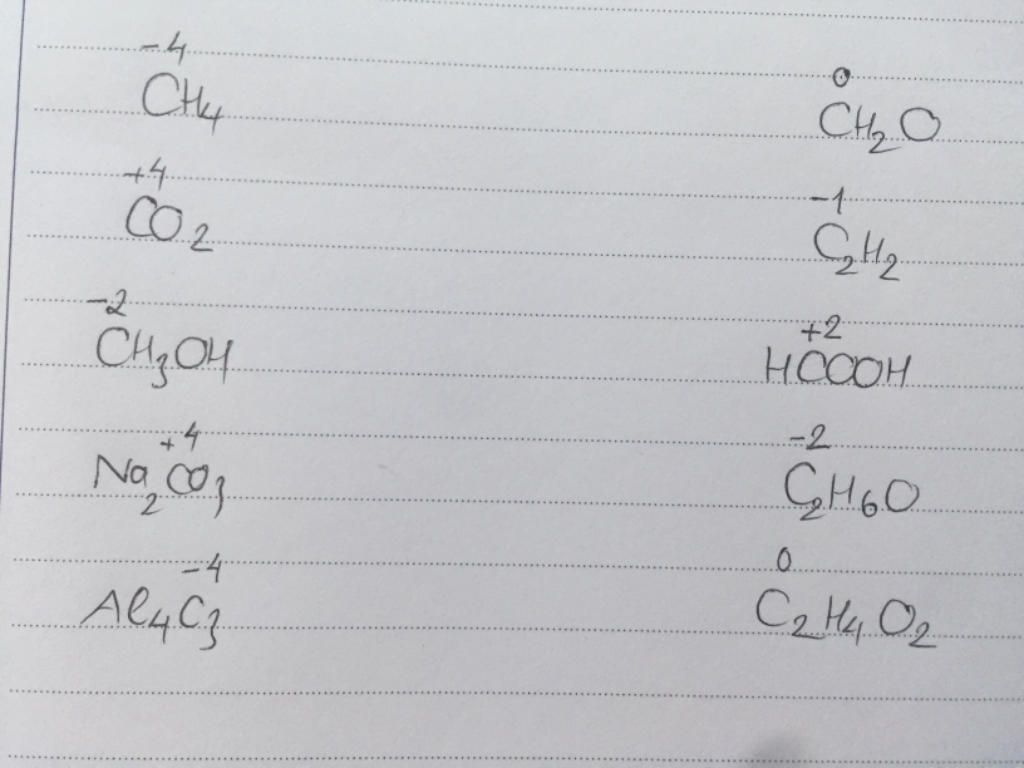 -4
CH4
0
CH2O
+4
CO2
-1
C2H2
-2
CH3OH
+2
HCOOH
+4
Na2CO3
-2
C2H6O
-4
Al4C3
0
C2H4O2